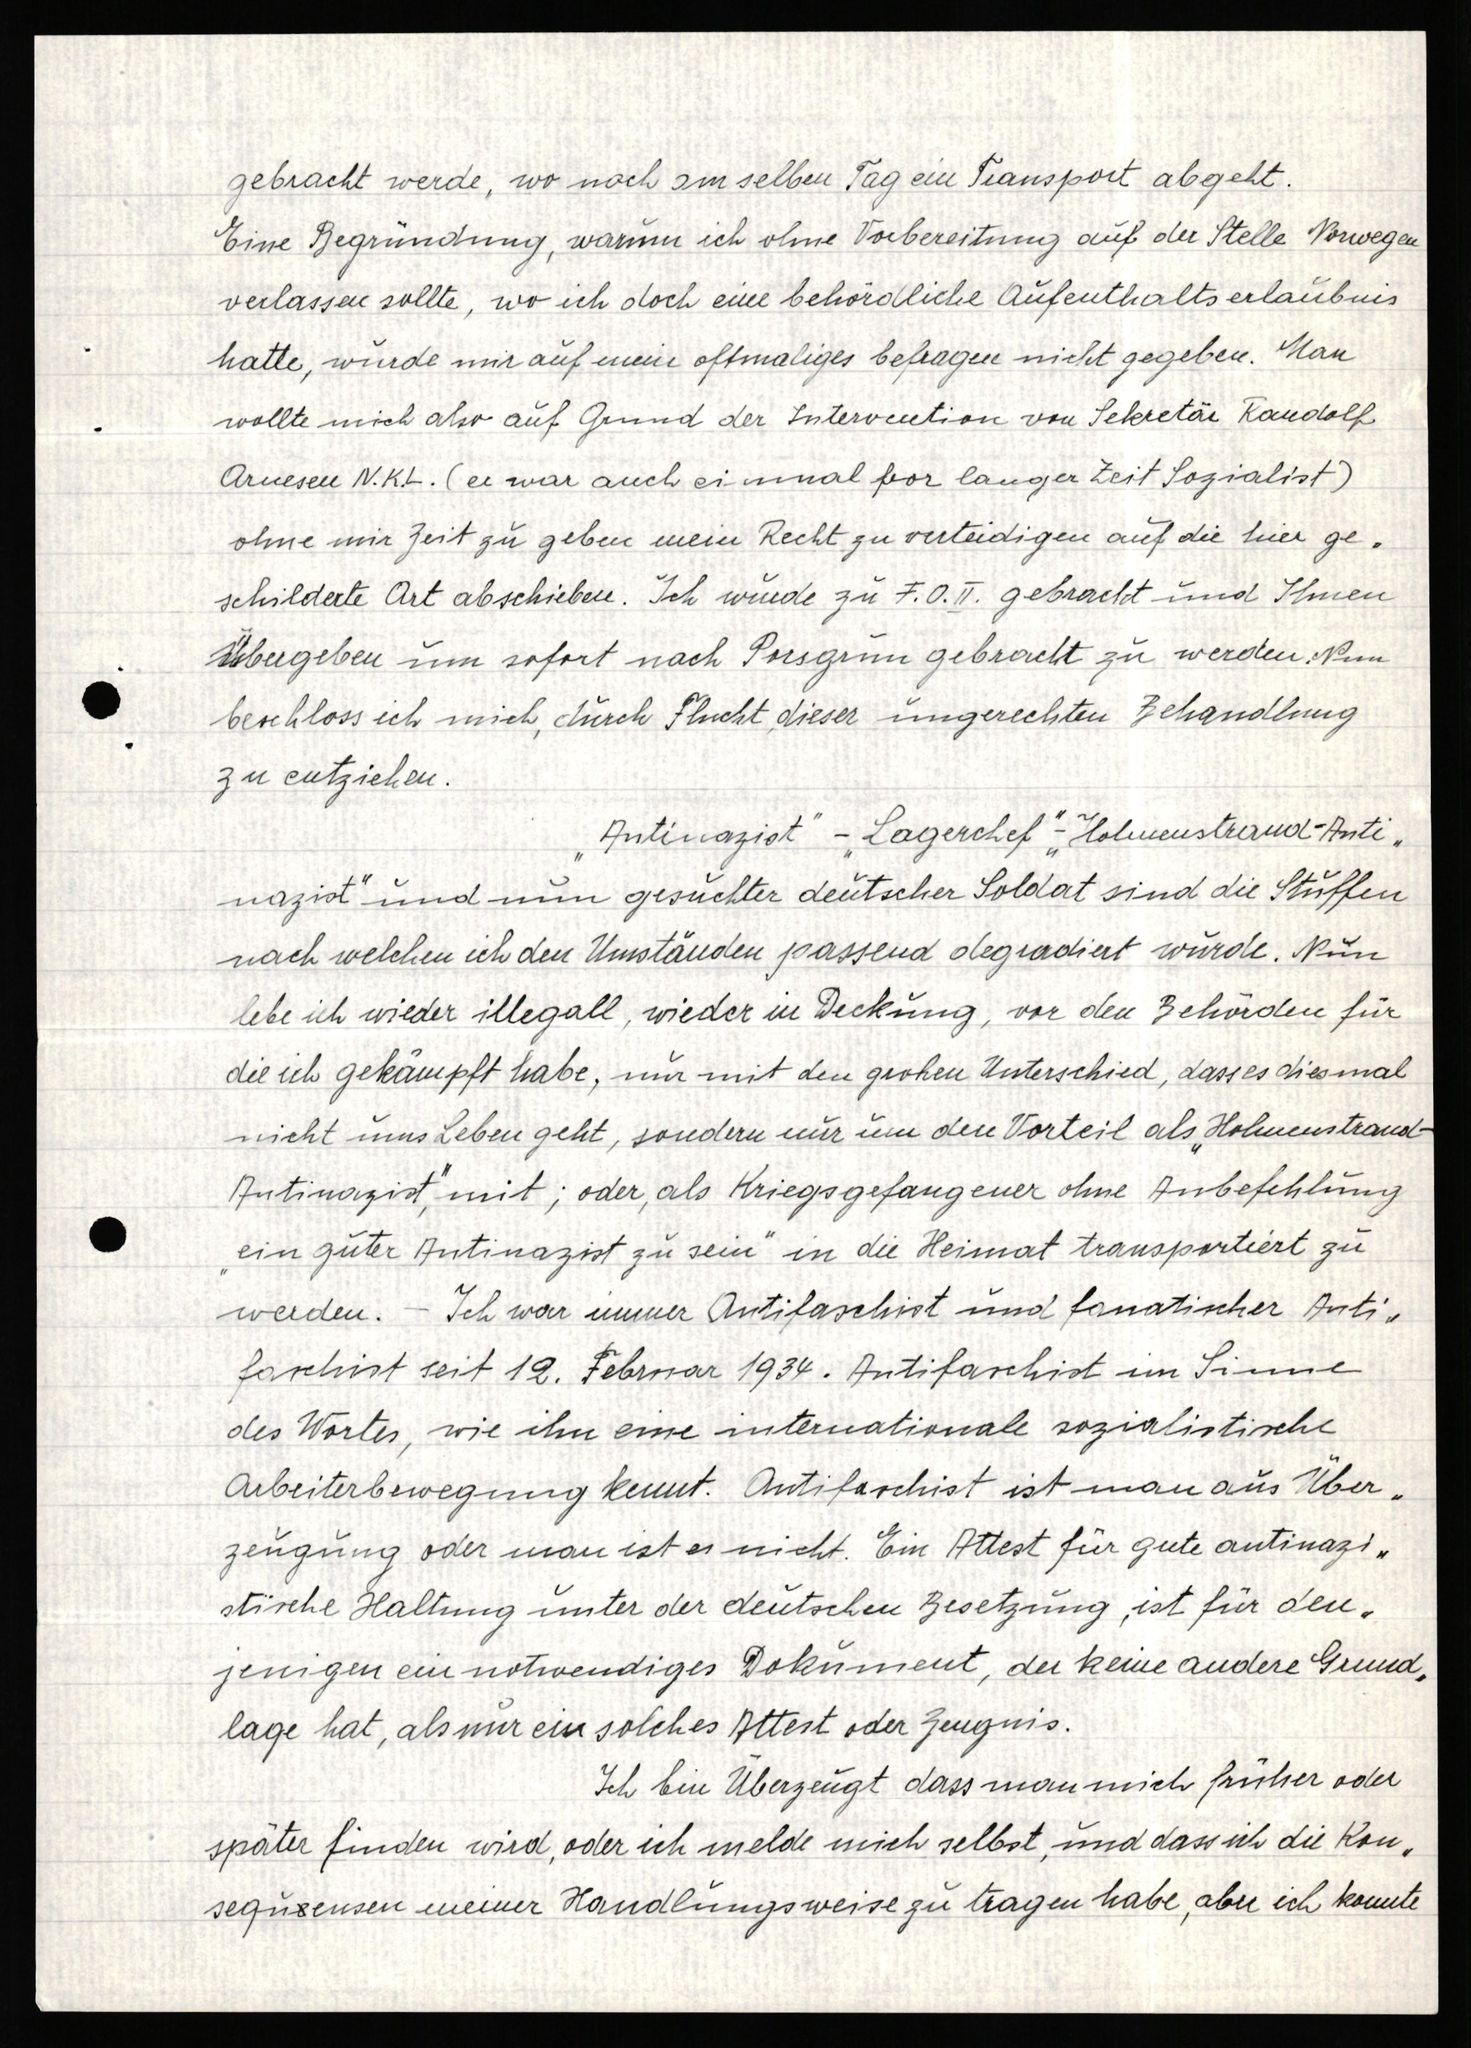 gebracht werde, wo noch am selben Tag ein Transport abgeht.
Eine Begründung, warum ich ohne Vorbereitung auf der Stelle Norwegen
verlassen sollte, wo ich doch eine behördliche Aufenthaltserlaubnis
hatte, wurde mir auf mein oftmaliges befragen nicht gegeben. Man
wollte mich also auf Grund der Intervention von Sekretär Randolf
Arnesen N.K.L. (er war auch einmal vor langer Zeit Sozialist)
ohne mir Zeit zu geben mein Recht zu verteidigen auf die hier ge„
schilderte Art abschieben. Ich wurde zu F.O.II. gebracht und Ihnen
Übergeben um sofort nach Porsgrun gebracht zu werden. Nun
beschloss ich mich, durch Flucht, dieser ungerechten Behandlung
zu entziehen.
„Antinazist" - „Lagerchef" - „Holmenstrand-Anti„
nazist" und nun gesuchter deutscher Soldat sind die Stuffen
nach welchen ich den Umständen passend degradiert wurde. Nun
lebe ich wieder illegall, wieder in Deckung, vor den Behörden für
die ich gekämpft habe, nur mit den grohen Unterschied, dass es diesmal
nicht ums Leben geht, sondern nur um den Vorteil als „Holmenstrand-
Antinazist," mit; oder, als Kriegsgefangener ohne Anbefehlung
„ein guter Antinazist zu sein" in die Heimat transportiert zu
werden. - Ich war immer Antifaschist und fanatischer Anti„
faschist seit 12. Februar 1934. Antifaschist im Sinne
des Wortes, wie ihn eine internationale sozialistische
Arbeiterbewegung kennt. Antifaschist ist man aus Über„
zeugung oder man ist es nicht. Ein Attest für gute antinazi„
stische Haltung unter der deutschen Besetzung, ist für den„
jenigen ein notwendiges Dokument, der keine andere Grund„
lage hat, als nur ein solches Attest oder Zeugnis.
Ich bin Überzeugt dass man mich früher oder
später finden wird, oder ich melde mich selbst, und dass ich die Kon„
sequensen meiner Handlungsweise zu tragen habe, aber ich konnte